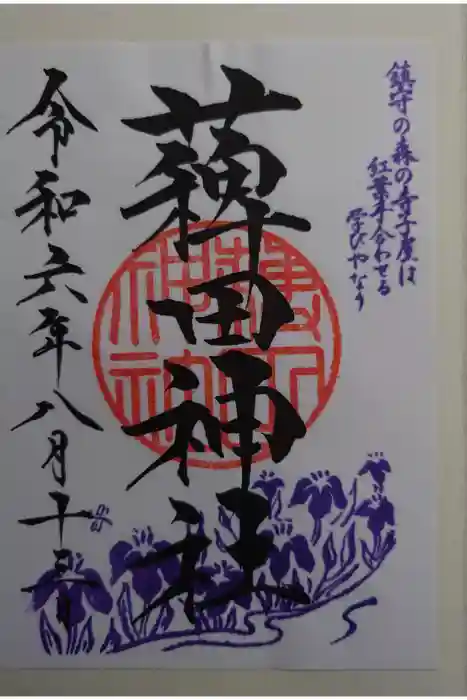 鎮守の森の寺子屋は
紅葉手合わせる
学びやなり
薭田神社
令和六年八月十五日